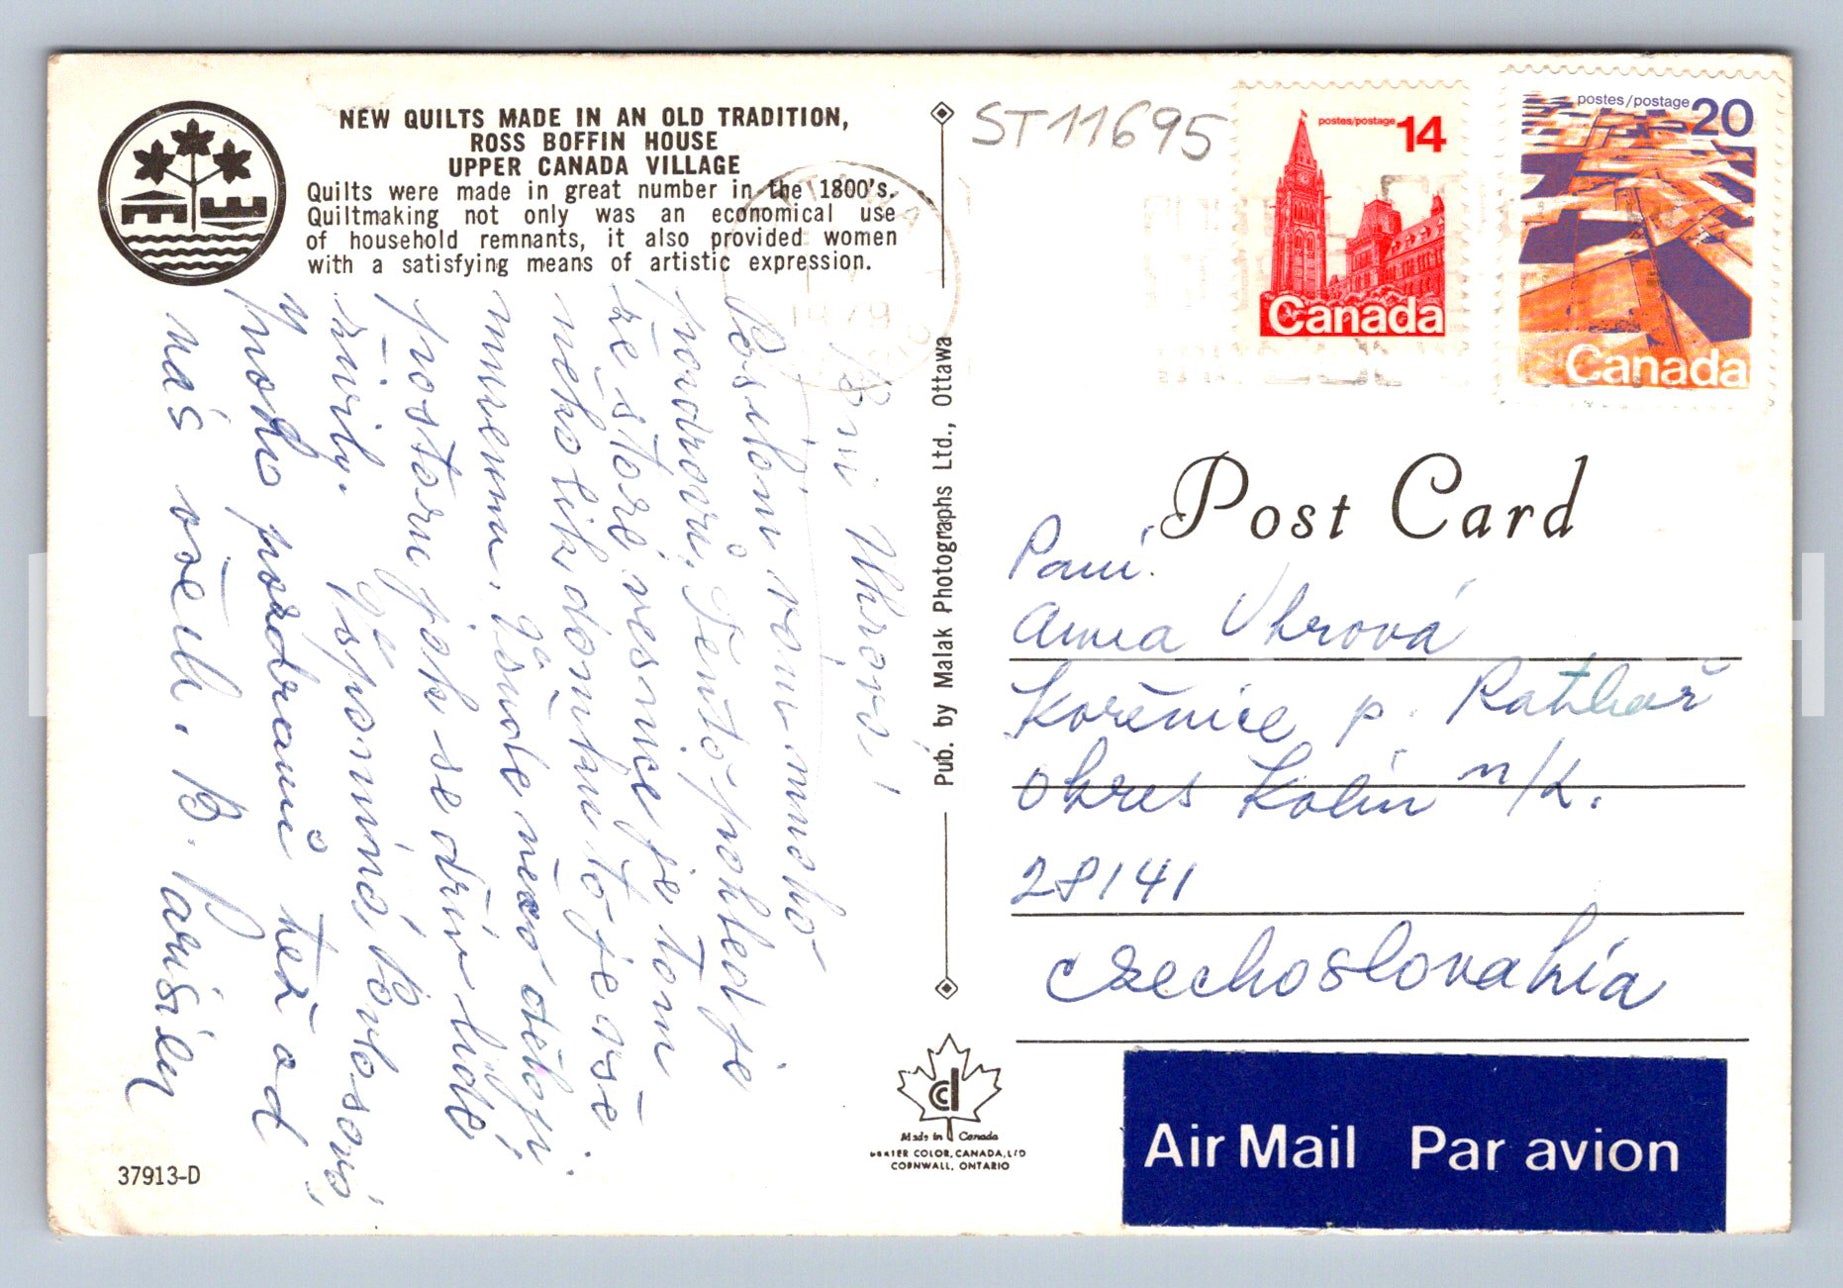 NEW QUILTS MADE IN AN OLD TRADITION,
ROSS BOFFIN HOUSE
UPPER CANADA VILLAGE
Quilts were made in great number in the 1800's.
Quiltmaking not only was an economical use
of household remnants, it also provided women
with a satisfying means of artistic expression.
Uhrová!
Posílám vám mnoho
pozdravů. Tento pohled je
ze staré vesnice je tam
několik domků to je vše
museum. Všude něco dělají
postaru jak se dřív lidé
živily. Vzpomíná
mnoho pozdravů též od
nás všech. B.
37913-D
Pub. by Malak Photographs Ltd., Ottawa
Made in Canada
DEXTER COLOR, CANADA, LTD
CORNWALL, ONTARIO
ST11695
postes/postage 14
Canada
postes/postage 20
Canada
Post Card
Paní
Anna Uhrová
Kořenice p. Ratboř
okres Kolín n/L.
28141
Czechoslovakia
Air Mail Par avion